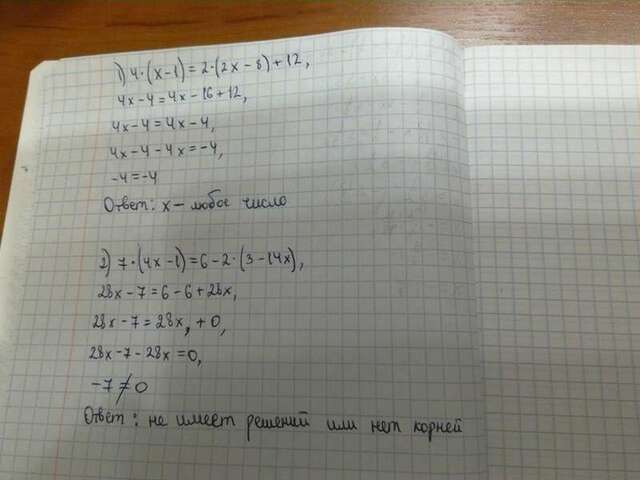 1) 4·(x-1)=2·(2x-8)+12,
4x-4=4x-16+12,
4x-4=4x-4,
4x-4-4x=-4,
-4=-4
Ответ: x- любое число
2) 7·(4x-1)=6-2·(3-14x),
28x-7=6-6+28x,
28x-7=28x, +0,
28x-7-28x=0,
-7≠0
Ответ: не имеет решений или нет корней